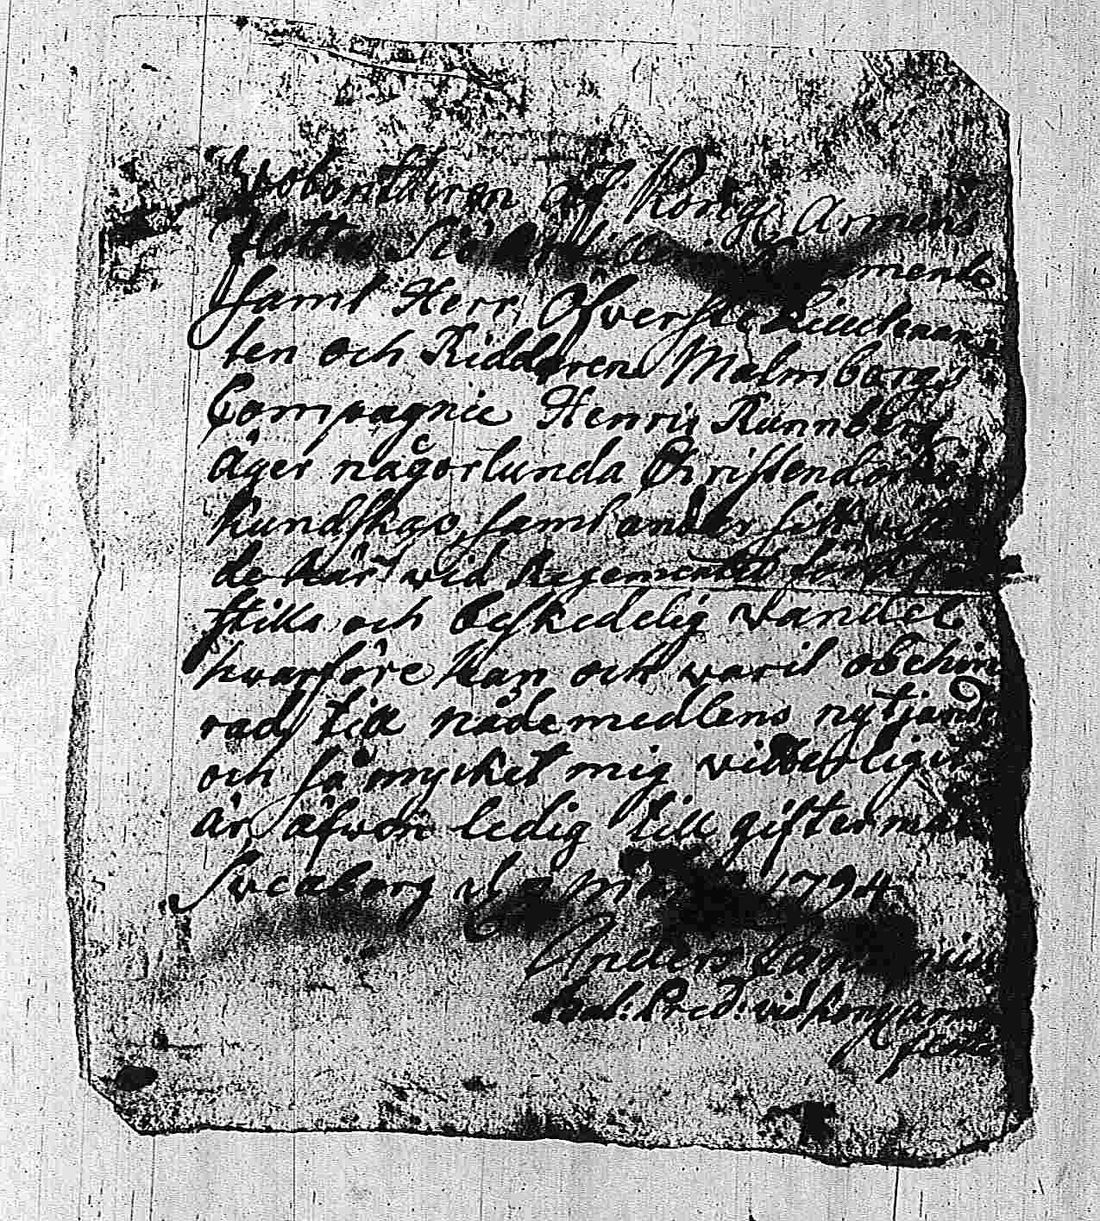 Volontären af Kongl. Armens
Flottas Siö Artillerie Regemente
samt Herr Öfverste Lieutenan
ten och Riddarens Malmborgs
Compagnie Henric Runnberg
äger någorlunda Christendoms
kundskap, samt under sitt
de här vid Regementet
stilla och beskedelig vandel
hvarföre han och warit obehin
rad till nådemedlens nytjande
och så mycket mig vitterligit
är, äfven ledig till giftermål
Sveaborg d. 1794
Anders
Bat: Pred: vid kongl arm
flotta